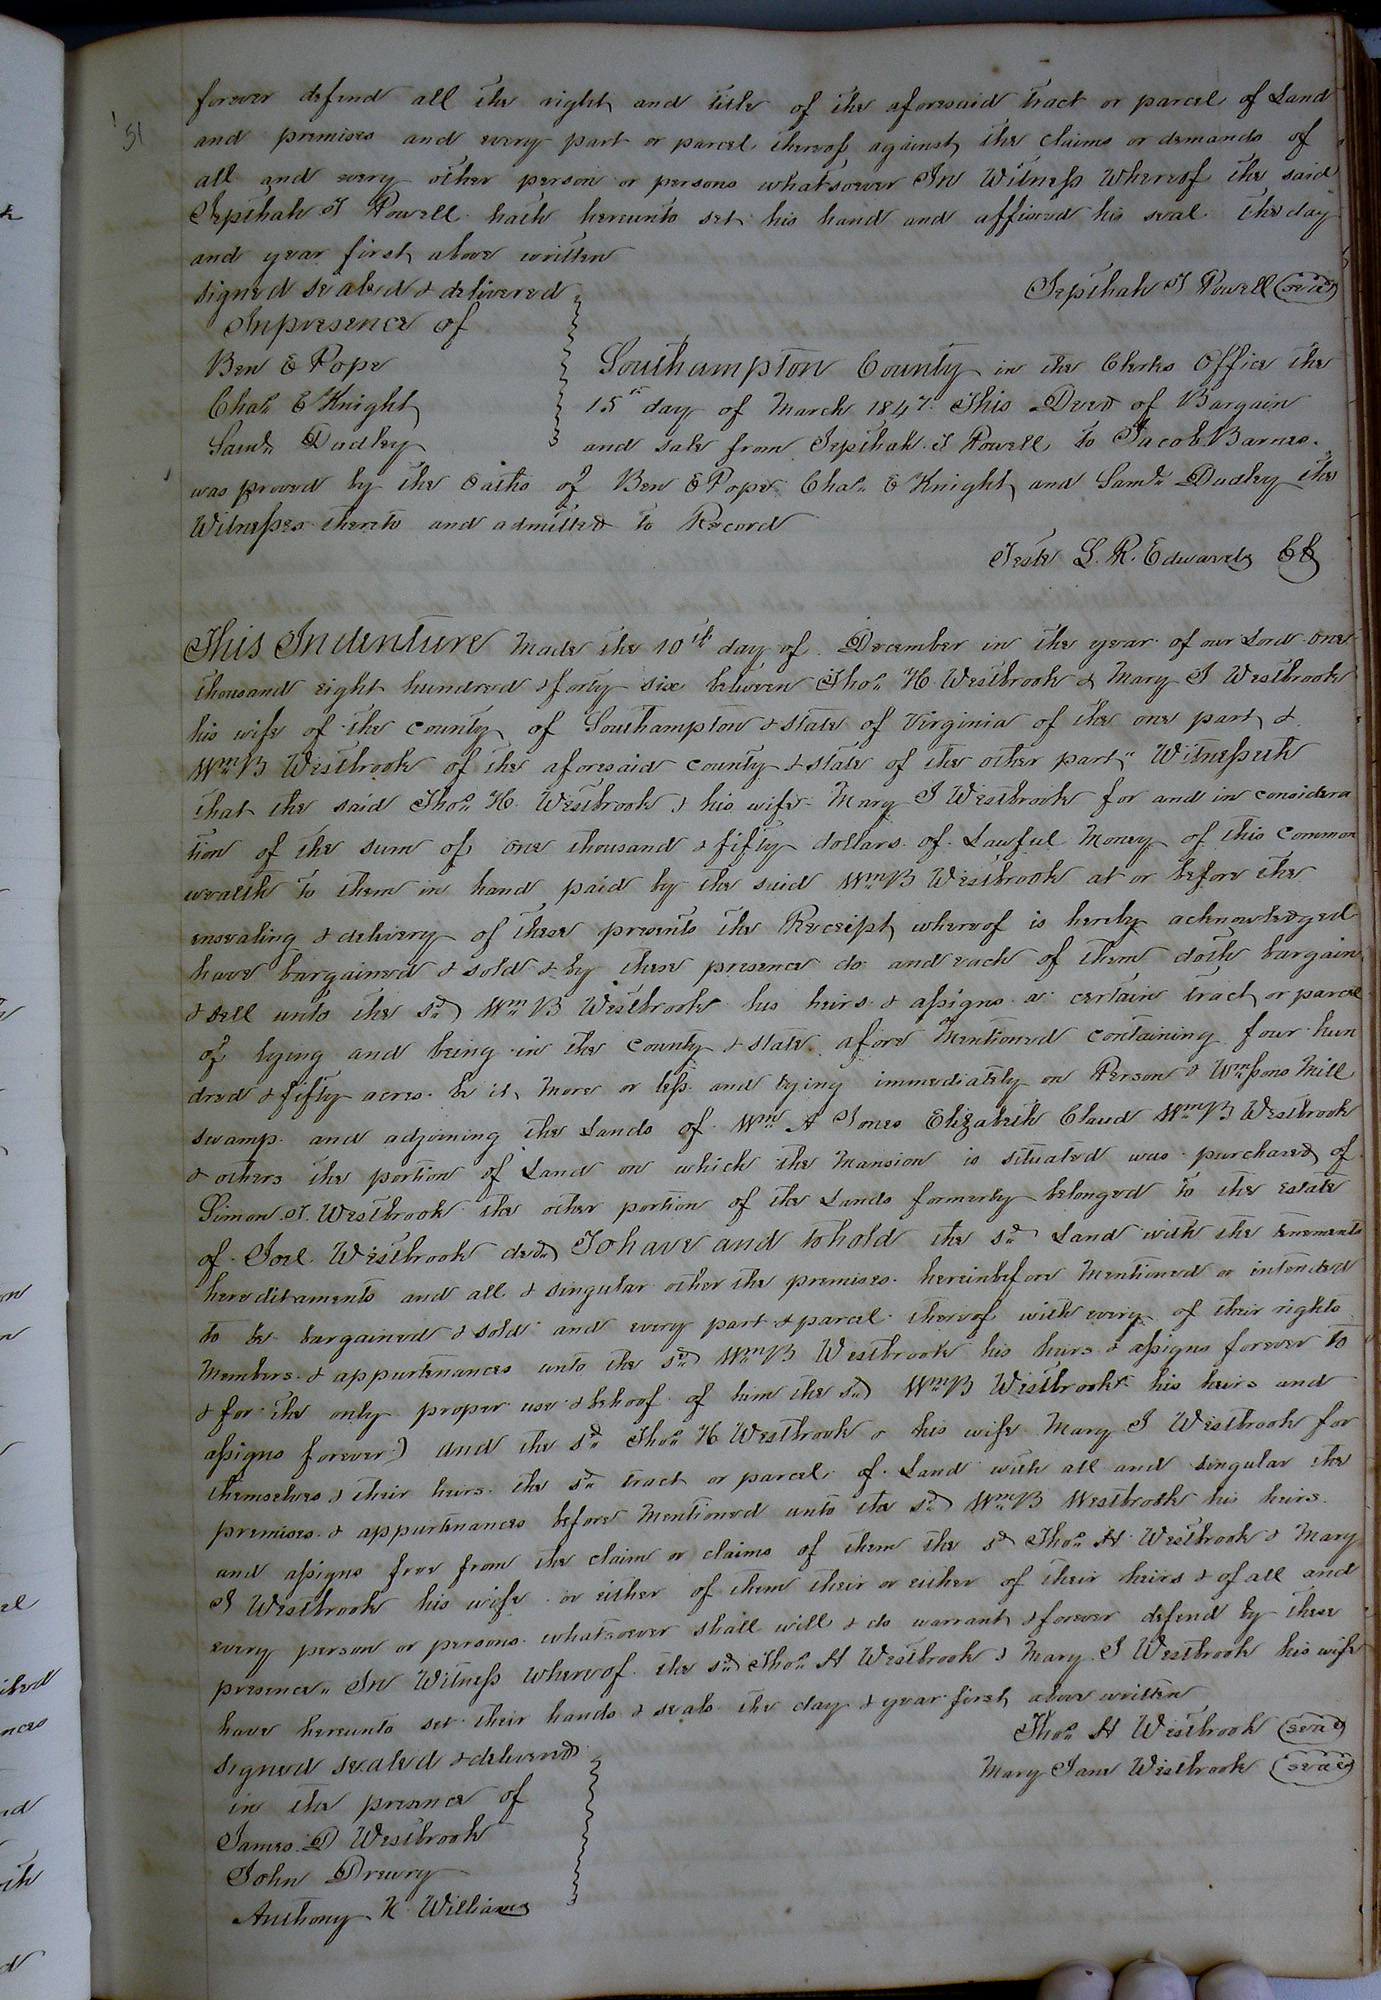 51
forever defend all the right and title of the aforesaid tract or parcel of Land
and premises and every part or parcel thereof against the claims or demands of
all and every other person or persons whatsoever In Witness Whereof the said
Jepthah J Powell hath hereunto set his hand and affixed his seal the day
and year first above written
signed sealed & delivered
Jepthah J Powell (seal)
In presence of
Ben E Pope
Chas E Knight
Saml Dudley
Southampton County in the Clerks Office the
15th day of March 1847. This Deed of Bargain
and sale from Jepthah J Powell to Jacob Barnes.
was proved by the oaths of Ben E Pope Chas E Knight and Saml Dudley the
Witnesses thereto and admitted to Record
Teste L. R. Edwards CC
This Indenture Made the 10th day of December in the year of our Lord one
thousand eight hundred & forty six between Thos H Westbrook & Mary J Westbrook
his wife of the county of Southampton & state of Virginia of the one part &
Wm B Westbrook of the aforesaid county & state of the other part" Witnesseth
that the said Thos H. Westbrook & his wife Mary J Westbrook for and in considera
tion of the sum of one thousand & fifty dollars of Lawful Money of this common
wealth to them in hand paid by the said Wm B Westbrook at or before the
ensealing & delivery of these presents the Receipt whereof is hereby acknowledged
have bargained & sold & by these presence do and each of them doth bargain
& sell unto the sd Wm B Westbrook his heirs & assigns a certain tract or parcel
of lying and being in the county & state afore Mentioned containing four hun
dred & fifty acres be it More or less and lying immediately on Person & Wmsons Mill
swamp and adjoining the Lands of Wm A Jones Elizabeth Claud Wm B Westbrook
& others the portion of Land on which the Mansion is situated was purchased of
Simon J. Westbrook the other portion of the Lands formerly belonged to the estate
of Joel Westbrook decd To have and to hold the sd Land with the tenements
hereditaments and all & singular other the premises hereinbefore Mentioned or intended
to be bargained & sold and every part & parcel thereof with every of their rights
Members & appurtenances unto the sd Wm B Westbrook his heirs & assigns forever to
& for the only proper use & behoof of him the sd Wm B Westbrook his heirs and
assigns forever) and the sd Thos H Westbrook & his wife Mary J Westbrook for
themselves & their heirs the sd tract or parcel of Land with all and singular the
premises & appurtenances before Mentioned unto the sd Wm B Westbrook his heirs
and assigns free from the claim or claims of them the sd Thos H Westbrook & Mary
J Westbrook his wife or either of them their or either of their heirs & of all and
every person or persons whatsoever shall will & do warrant & forever defend by these
presence" In Witness whereof the sd Thos H Westbrook & Mary J Westbrook his wife
have hereunto set their hands & seals the day & year first above written
Thos H Westbrook (seal)
signed sealed & delivered
Mary Jane Westbrook (seal)
in the presence of
James D Westbrook
John Drewry
Anthony K Williams